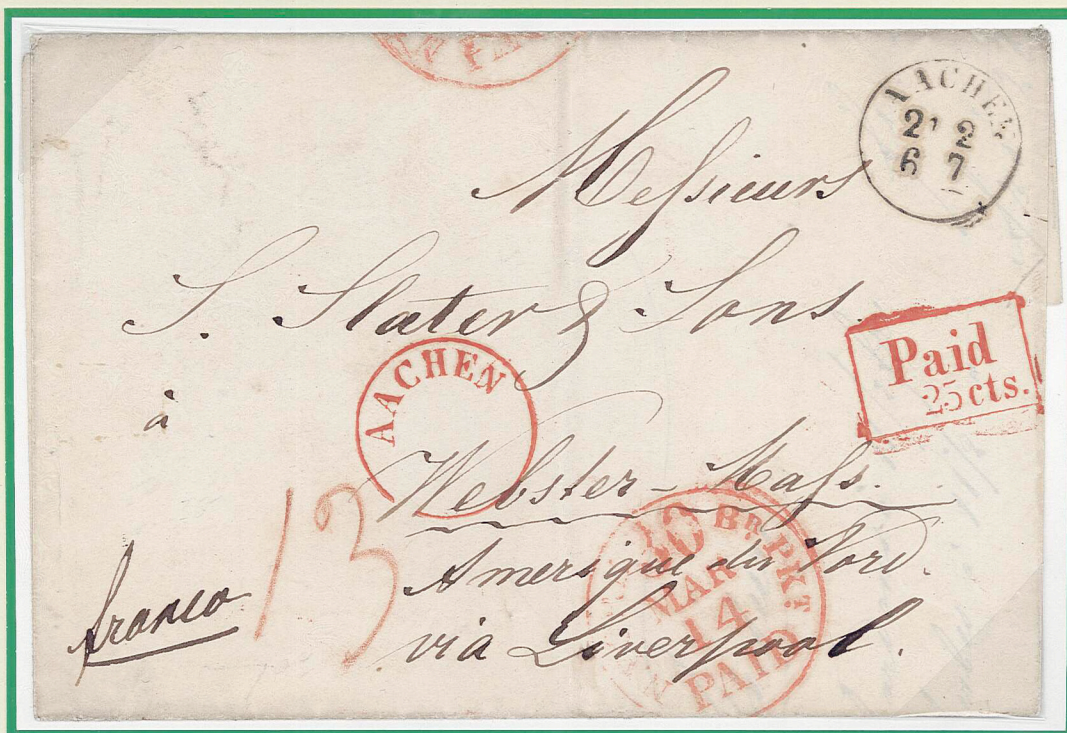 AACHEN
2 2
6 7
Messieurs
S. Slater & Sons.
Paid
25 cts.
AACHEN
à
Webster - Mass.
30 BR. PKT.
MAR
14
PAID
13
Amerique du Nord.
franco
via Liverpool.